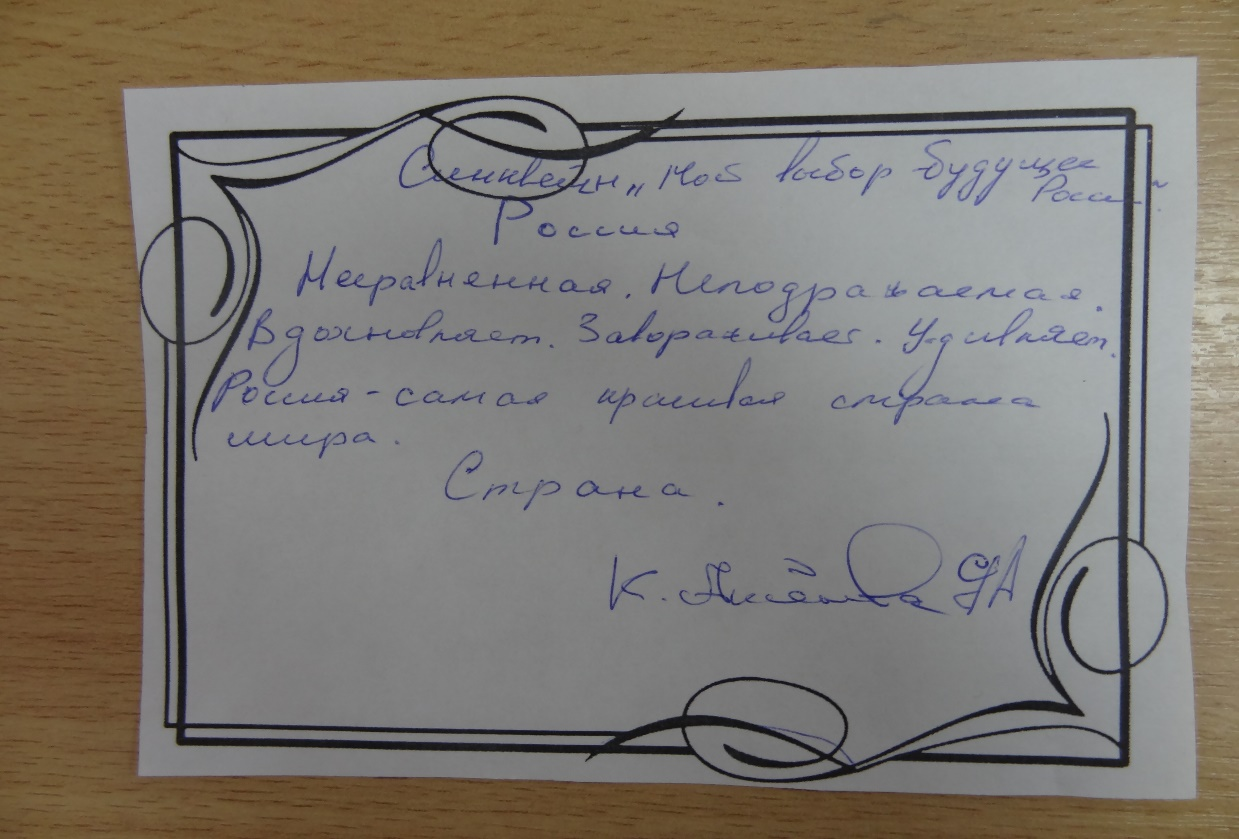 Синквейн „Мой выбор-будущее
России“.
Россия
Несравненная. Неподражаемая.
Вдохновляет. Завораживает. Удивляет.
Россия - самая красивая страна
мира.
Страна.
К.